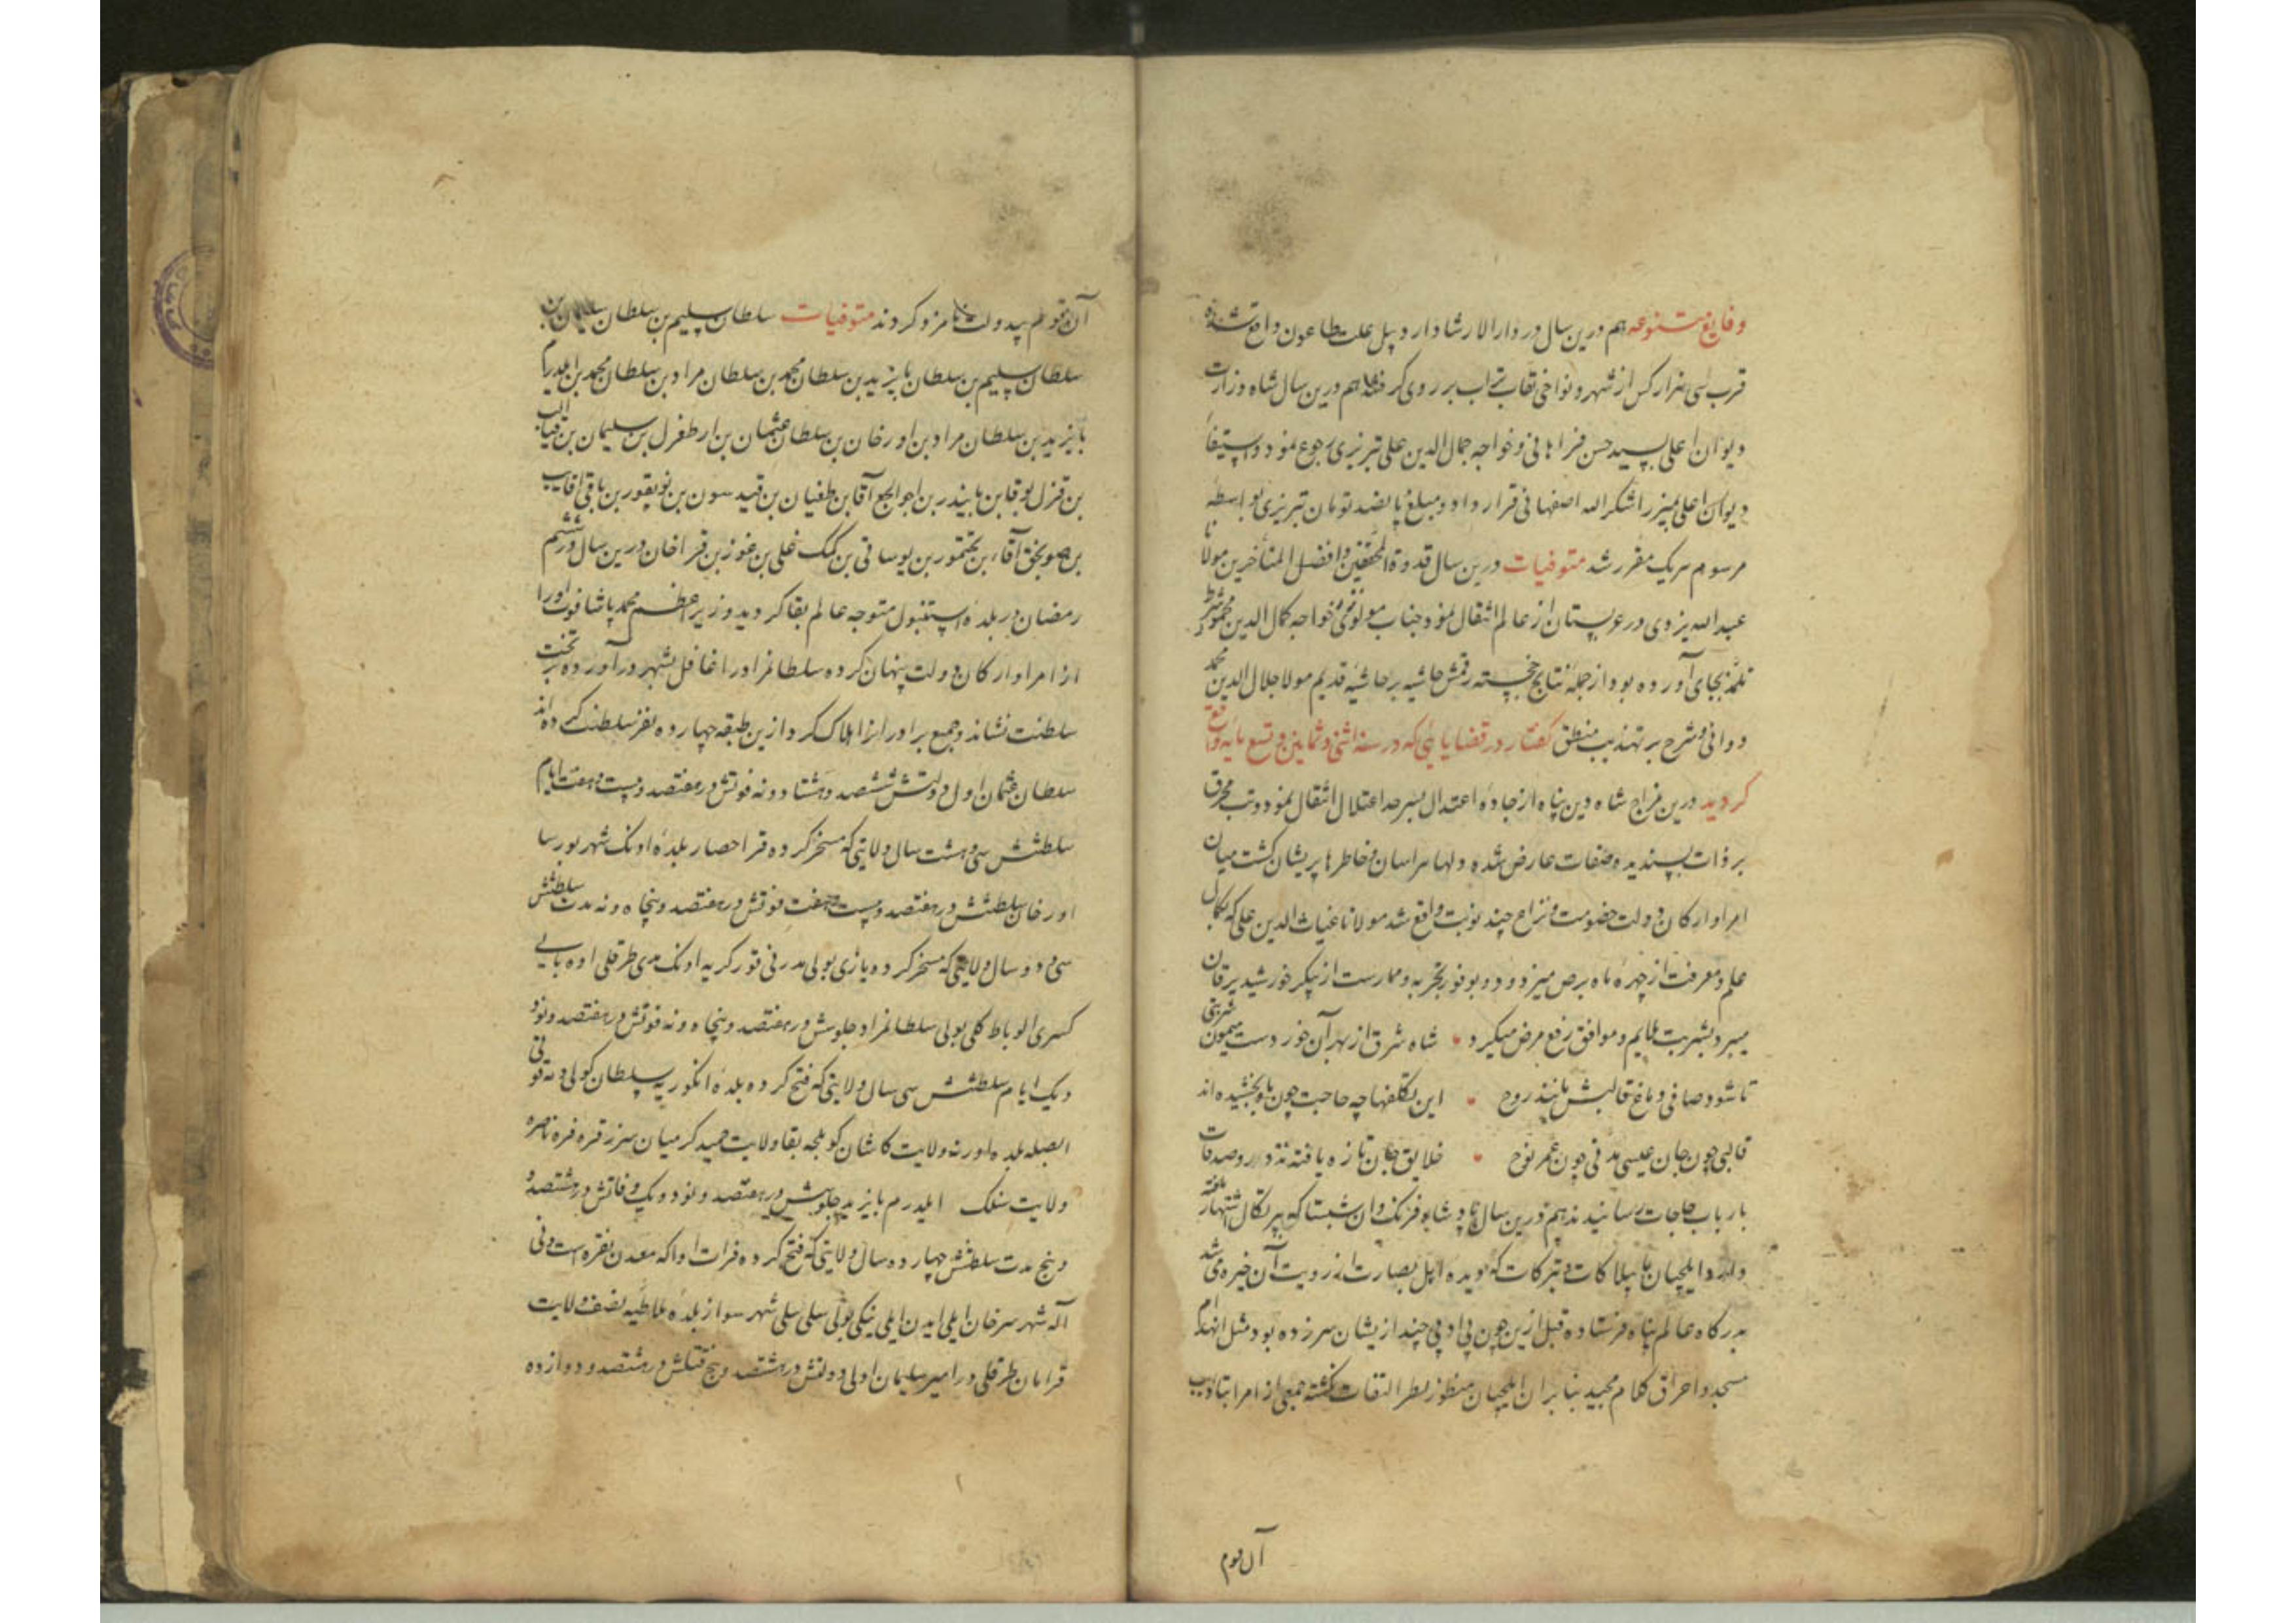 وقایع متنوعه هم درین سال در دارالارشاد اردبیل علت طاعون واقع شده
قرب سی هزار کس از شهر و نواحی نقاب تراب بر روی گرفتند هم درین سال شاه وزارت
دیوان اعلی بسید حسن فراهانی و خواجه جمال الدین علی تبریزی رجوع نمود و استیفا
دیوان اعلی بمیرزا شکر الله اصفهانی قرار داد و مبلغ پانصد تومان تبریزی بواسطه
مرسوم هریک مقرر شد متوفیات درین سال قدوة المحققین و افضل المتأخرین مولانا
عبدالله یزدی در عربستان از عالم انتقال نمود جناب مولوی نزد خواجه کمال الدین محمود شرط
تلمذ بجای آورده بود از جمله نتایج خجسته رقمش حاشیه بر حاشیه قدیم مولا جلال الدین محمد
دوانی و شرح بر تهذیب منطق گفتار در قضایایی که در سنه اثنی و ثمانین و تسعمایه واقع
گردید درین مزاج شاه دین پناه از جاده اعتدال بسرحد اعتلال انتقال نمود و تب محرق
بر ذات پسندیده صفات عارض شده دلها هراسان و خاطرها پریشان گشت میان
امرا و ارکان دولت خصومت و نزاع چند نوبت واقع شد مولانا غیاث الدین علی که بکمال
علم و معرفت از چهره ماه برص میزدود و بوفور تجربه و ممارست از پیکر خورشید یرقان
میبرد بشربت ملایم و موافق رفع مرض میکرد • شاه شرق از بهر آن خورد دست میمون شربتی
تا شود صافی دماغ قالبش مانند روح • این تکلفها چه حاجت چون باو بخشیده اند
قالبی چون جان عیسی مدتی چون عمر نوح • خلایق جان تازه یافتند نذور و صدقات
بارباب حاجات رسانیدند هم درین سال پادشاه فرنگ دان سبستا که بپرتکال اشتهار یافته
و ایلچیان با بیلاکات و تبرکات که دیده اهل بصارت از رویت آن خیره می شد
بدرگاه عالم پناه فرستاده قبل ازین چون بی ادبی چند ازیشان سر زده بود مثل انهدام
مسجد و احراق کلام مجید بنا بر آن ایلچیان منظور نظر التفات نگشته جمعی از امرا بتادیب
آن قوم
آن قوم بیدولت نامزد کردند متوفیات سلطان سلیم بن سلطان سلیمان بن
سلطان سلیم بن سلطان بایزید بن سلطان محمد بن سلطان مراد بن سلطان محمد بن ایلدرم
بایزید بن سلطان مراد بن اورخان بن سلطان عثمان بن ارطغرل بن سلیمان بن
بن قزل بوقا بن بایندر بن آقا بن طغیان بن قید سون بن توبقور بن باقی آقا
بن آقا بن بختمور بن یوساقی بن کک علی بن غوز بن قراخان درین سال در ششم
رمضان در بلده استنبول متوجه عالم بقا گردید وزیر اعظم محمد پاشا فوت او را
از امرا و ارکان دولت پنهان کرده سلطانمراد را غافل بشهر در آورده بر تخت
سلطنت نشاند و جمیع برادران را هلاک کرد ازین طبقه چهارده نفر سلطنت کرده اند
سلطان عثمان اول دولتش ششصد و هشتاد و نه فوتش در هفتصد و بیست و هفت ایام
سلطنتش سی و هشت سال ولایتی که مسخر کرده قرا حصار بلده اونک شهر بورسا
اورخان سلطنتش در هفتصد و بیست و هفت فوتش در هفتصد و پنجاه و نه مدت سلطنتش
سی و دو سال ولایتی که مسخر کرده یازی بولی
سلطانمراد جلوسش در هفتصد و پنجاه و نه فوتش در هفتصد و نود
و یک ایام سلطنتش سی سال ولایتی که فتح کرده بلده انکوریه سلطان
بلده ادرنه ولایت کاشان ولایت حمید کرمیان
ولایت سنلک ایلدرم بایزید جلوسش در هفتصد و نود و یک وفاتش در هشتصد و
و پنج مدت سلطنتش چهارده سال ولایتی که فتح کرده فرات او را که معدن نقره است
اله شهر سرخان ایلی ایدین ایلی شهر سواز بلده ملاطیه نصف ولایت
قرامان امیر سلیمان اول دولتش در هشتصد و پنج قتلش در هشتصد و دوازده